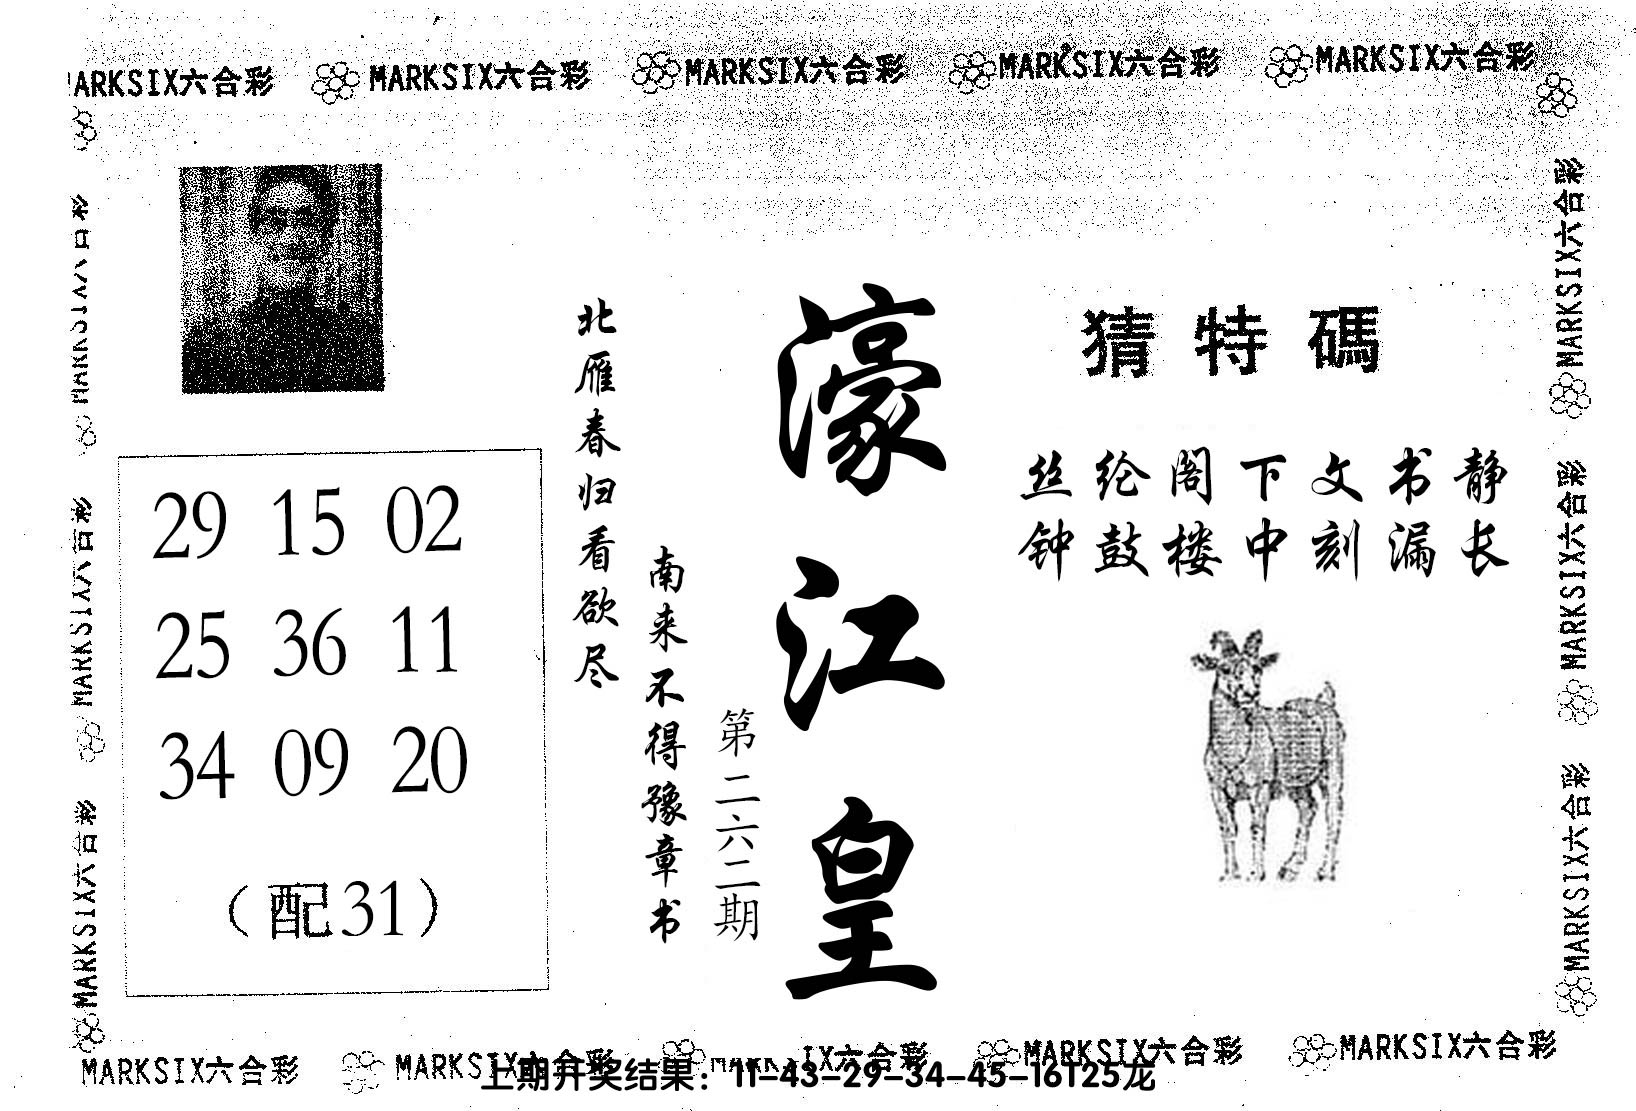 MARKSIX六合彩 MARKSIX六合彩 MARKSIX六合彩 MARKSIX六合彩
ARKSIX六合彩
猜特碼
丝纶阁下文书静
钟鼓楼中刻漏长
濠江皇
第二六二期
北雁春归看欲尽
南来不得豫章书
29 15 02
25 36 11
34 09 20
（配31）
MARKSIX六合彩
MARKSIX六合彩
MARKSIX六合彩
MARKSIX六合彩
MARKSIX六合彩
MARKSIX六合彩 MARKSIX六合彩 MARKSIX六合彩 MARKSIX六合彩
上期开奖结果：11-43-29-34-45-16T25龙